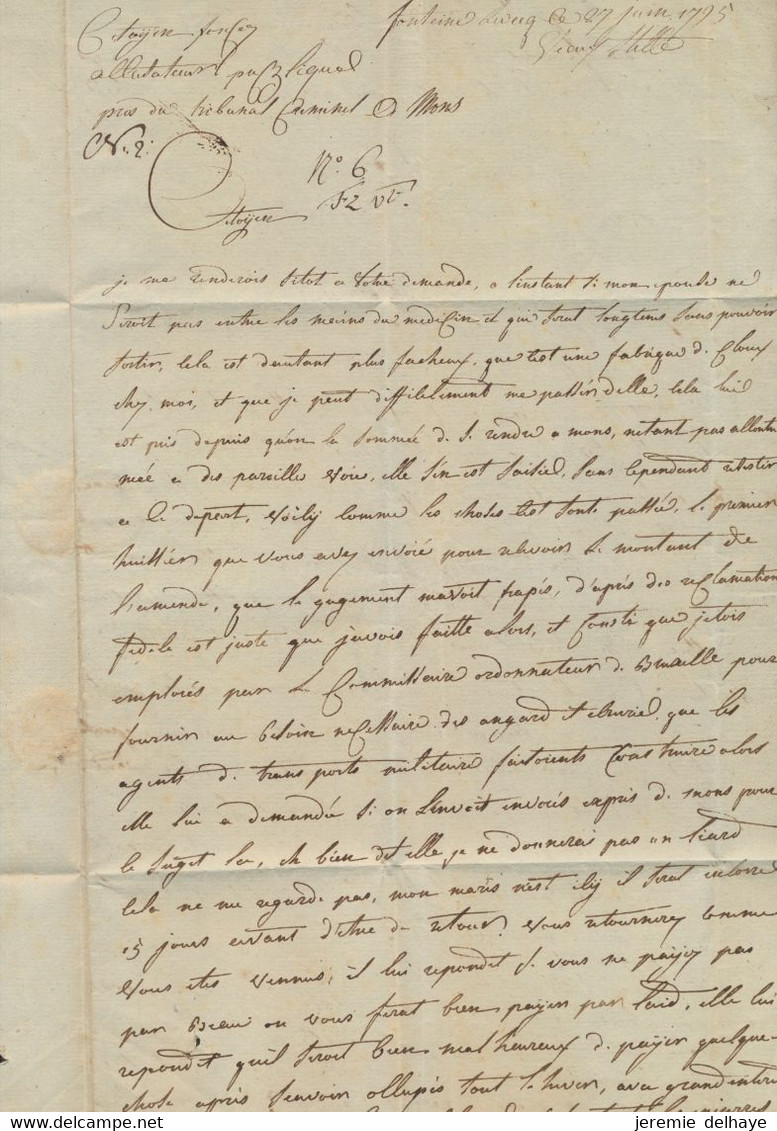 fonteine Leveq Ce 27 juin 1795
Vieux stille
Citoyen
accusateur publique
pres du tribunal Criminel a Mons
N. 2:
No. 6
Citoyen
je me renderois sitot a votre demande, a linstant si mon epouse ne
seroit pas entre les meins du medecin et qui serat longtems sans pouvoir
sortir, cela est dautant plus facheux, que cest une fabrique de cloux
chez moi, et que je peut difficilement me passer delle, cela lui
est pris depuis qu'on la sommée de se rendre a mons, netant pas accoutu
mée a des pareille voie, elle sen est saisied, sans cependant resister
a ce depart, voicy comme les choses ce sont passée, le premier
huissier que vous avez envoié pour recevoir le montant de
l'amende, que le jugement mavoit frapés, d'après des reclamation
fidele est juste que j'avois faitte alors, et consti que jetois
emploiés par le Commissaire ordonnateur de Bruxelle pour
fournir au besoin necessaire des angard et ecurie que les
agents de transports militaire faisoients construire alors
elle lui a demandée si on l'envoit envoiés exprès de mons pour
le suget la, eh bien dit elle je ne donnerai pas un liard
cela ne me regarde pas, mon maris n'est icy il serat encorre
15 jours avant d'etre de retour, vous retournerez comme
vous etes vennus, il lui repondit si vous ne paijez pas
par Beau on vous ferat bien paijer par laid, elle lui
repondit qu'il seroit bien malheureux de paijer quelque-
chose apres l'avoir occupés tout l'hiver, avec grand
jeremie delhaye